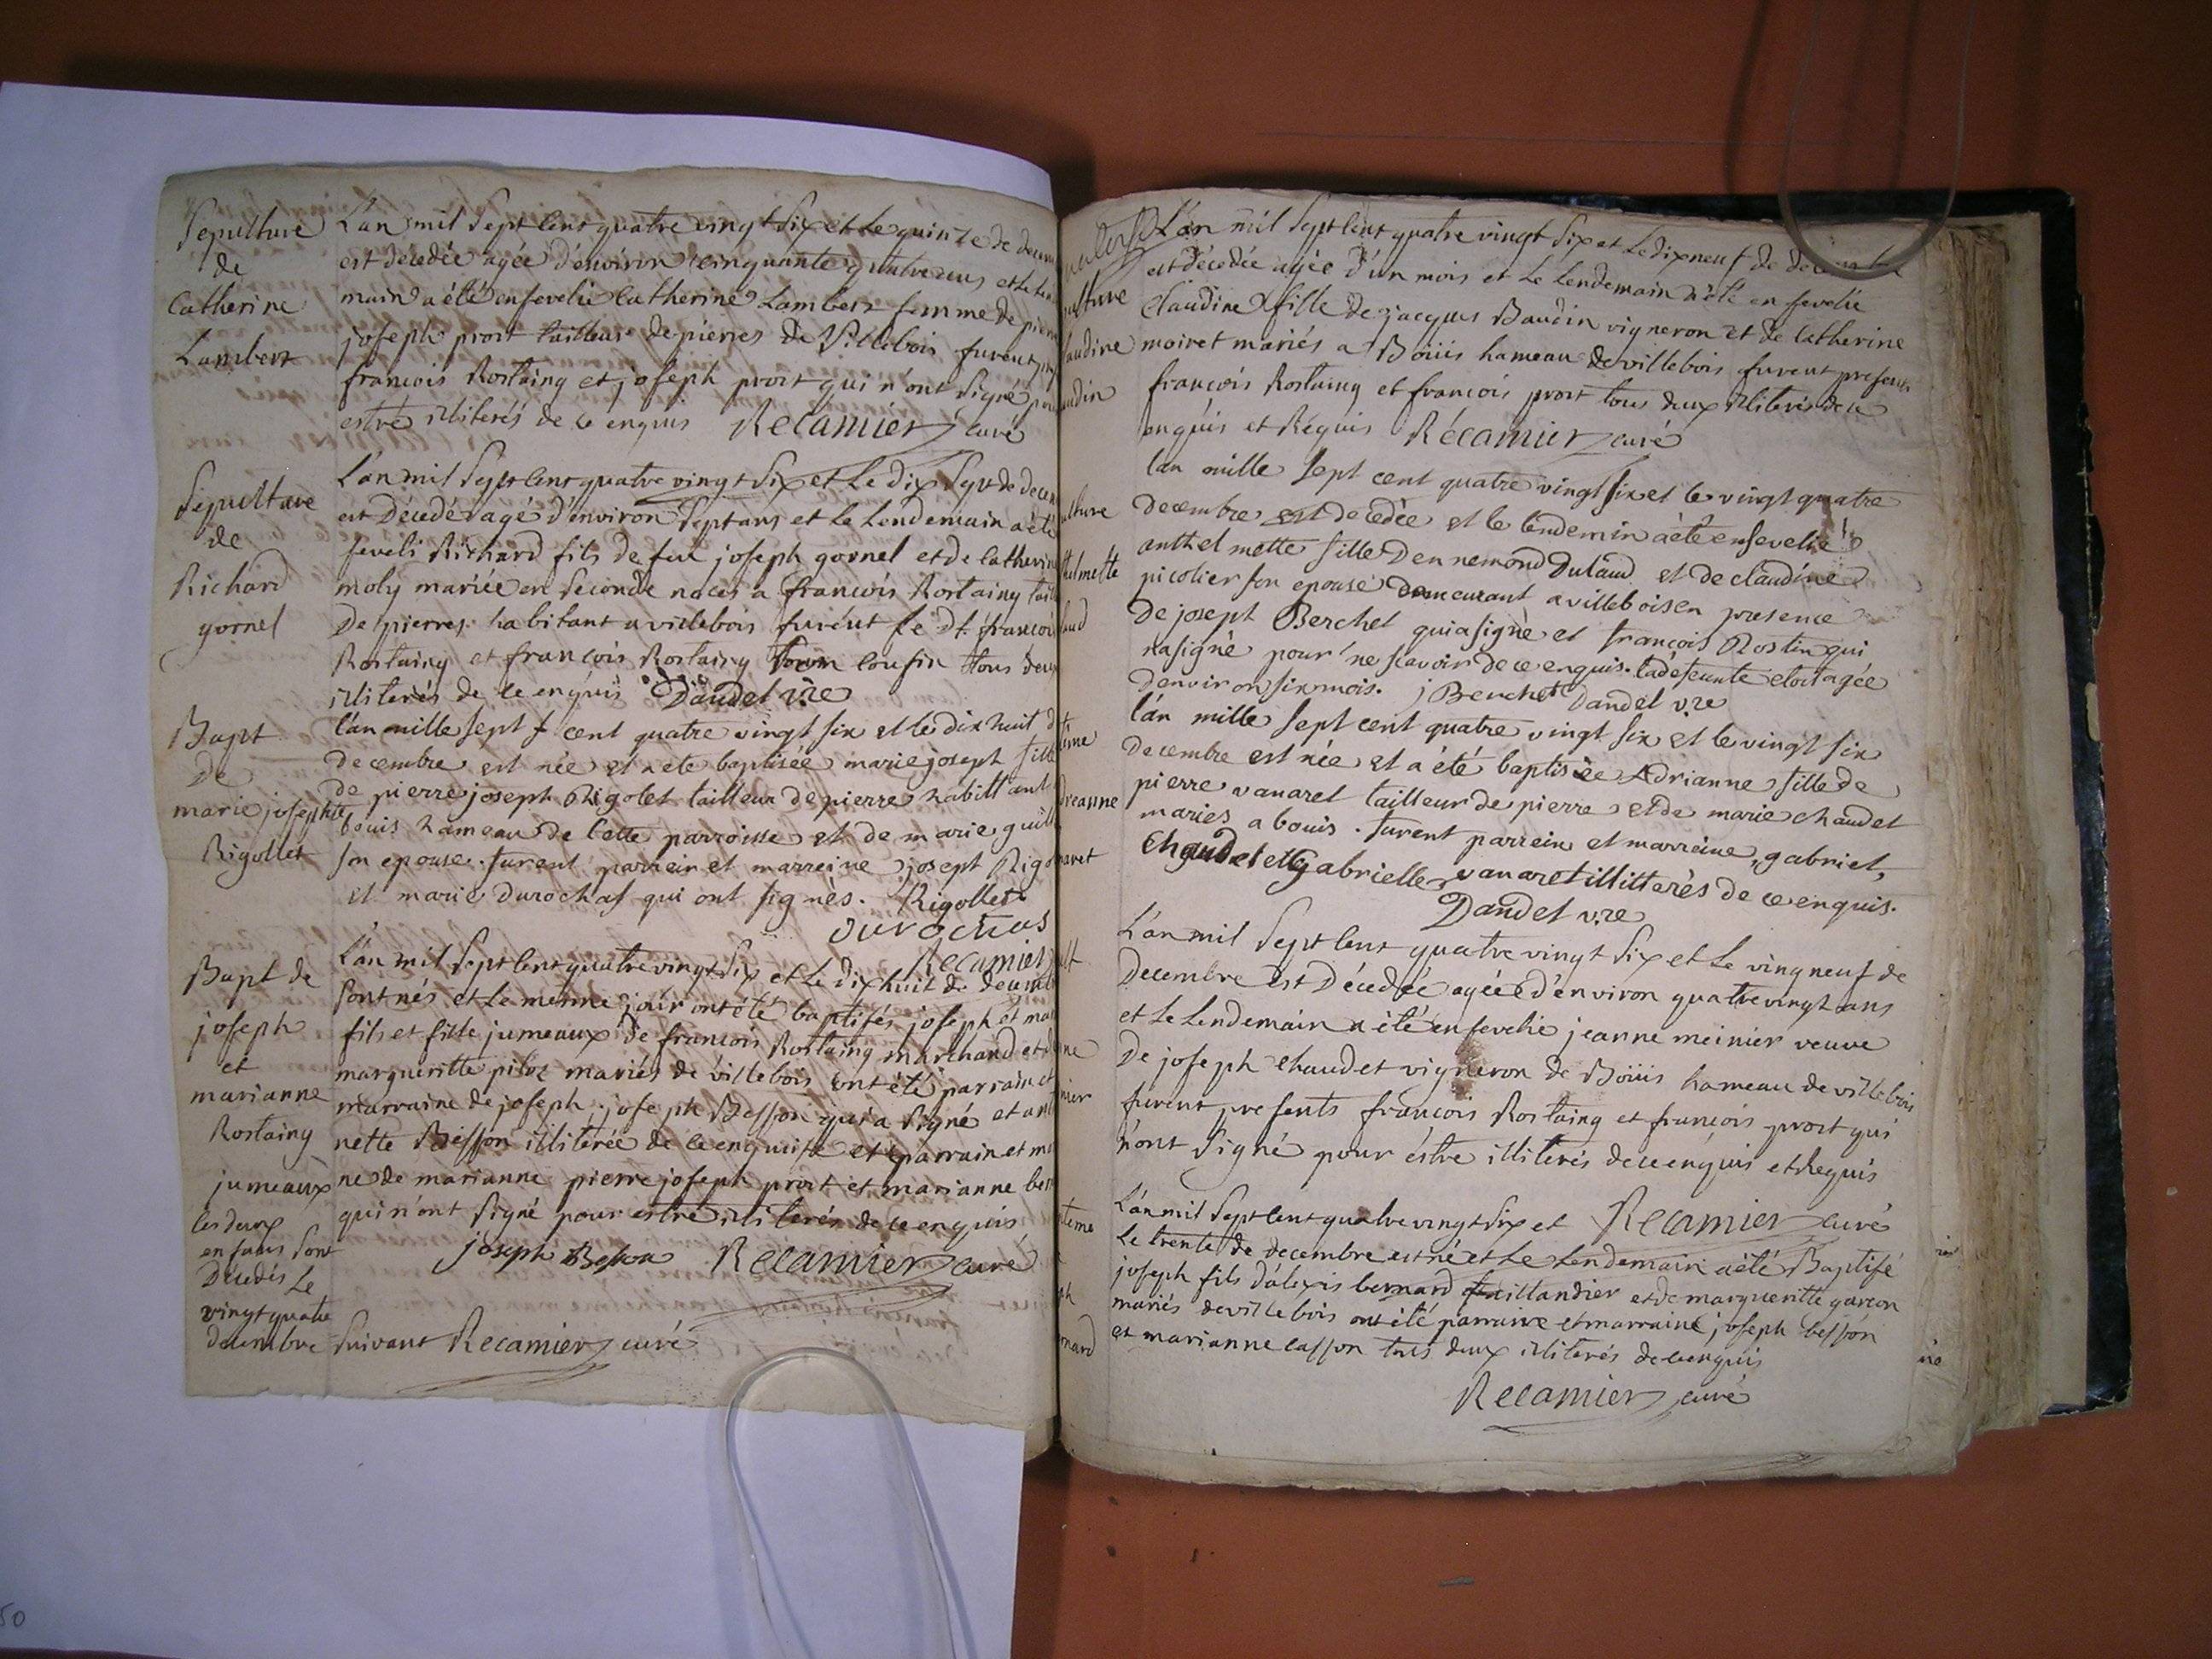 Sepulture
de
Catherine
Lambert
L'an mil sept cent quatre vingt six et le quinze de
est décédée agée d'environ cinquante quatre ans et le
main a été ensevelie Catherine Lambert femme de pierre
joseph proit tailleur de pierres de Villebois furent
françois Rostaing et joseph proit qui n'ont signé
estre illiterés de ce enquis Récamier curé
Sepulture
de
Richard
gornel
L'an mil sept cent quatre vingt six et le dix sept de
est décédé agé d'environ sept ans et le lendemain a été
seveli Richard fils de feu joseph gornel et de Catherin
moly mariée en seconde noces a françois Rostaing
de pierres habitant a villebois furent le dt françois
Rostaing et françois Rostaing son cousin tous deux
illiterés de ce enquis Daudel v.re
Bapt
de
marie josephte
Rigollet
l'an mille sept cent quatre vingt six et le dix huit
decembre est née et a ete baptisée marie joseph fille
de pierre joseph Rigolet tailleur de pierre habittant
bouis hameau de cette parroisse et de marie
son epouse. furent parrein et marreine josept
et marie durochas qui ont signés. Rigollet
durochas
Recamier
Bapt de
joseph
et
marianne
Rostaing
jumeaux
les deux
enfans sont
décédés le
vingt quatre
decembre suivant Recamier curé
L'an mil sept cent quatre vingt six et le dix huit de decembre
sont nés et le meme jour ont été baptisés joseph et
fils et fille jumeaux de françois Rostaing marchand et
margueritte piloz mariés de villebois ont été parrain et
marraine de joseph, joseph Besson qui a signé et
nette Besson illiterée de ce enquise et parrain et
ne de marianne pierre joseph proit et marianne
qui n'ont signé pour estre illiterés de ce enquis
joseph Beson Récamier curé
L'an mil sept cent quatre vingt six et le dix neuf de decembre
est décédée agée d'un mois et le lendemain a été ensevelie
Claudine fille de jacques Baudin vigneron et de Catherine
moiret mariés a Boüis hameau de villebois furent presents
françois Rostaing et françois proit tous deux illiterés de ce
enquis et Requis Récamier curé
lan mille sept cent quatre vingt six et le vingt quatre
decembre est decedée et le lendemin a èté ensevelie
anthelmette fille dennemond Dulaud et de claudine
picolier son epouse demeurant a villebois en presence
de josept Berchet qui a signé et françois Rostin qui
na signé pour ne scavoir de ce enquis. la defeunte etoit agée
denviron six mois. j Berchet Daudel v.re
l'an mille sept cent quatre vingt six et le vingt six
decembre est née et a été baptisée Adrianne fille de
pierre vanaret tailleur de pierre et de marie chaudet
maries a bouis. furent parrein et marreine, gabriel,
chaudet et Gabrielle vanaret illitterés de ce enquis.
Daudel v.re
L'an mil sept cent quatre vingt six et le vingneuf de
decembre est décédée agée d'environ quatre vingt ans
et le lendemain a été ensevelie jeanne meinier veuve
de joseph chaudet vigneron de Boüis hameau de villebois
furent presents françois Rostaing et françois proit qui
n'ont signé pour éstre illiterés de ce enquis et Requis
L'an mil sept cent quatre vingt six et Récamier curé
le trente de decembre est né et le lendemain a été Baptisé
joseph fils d'alexis bernard taillandier et de margueritte garcon
mariés de villebois ont été parrain et marraine joseph besson
et marianne casson tous deux illiterés de ce enquis
Récamier curé
50